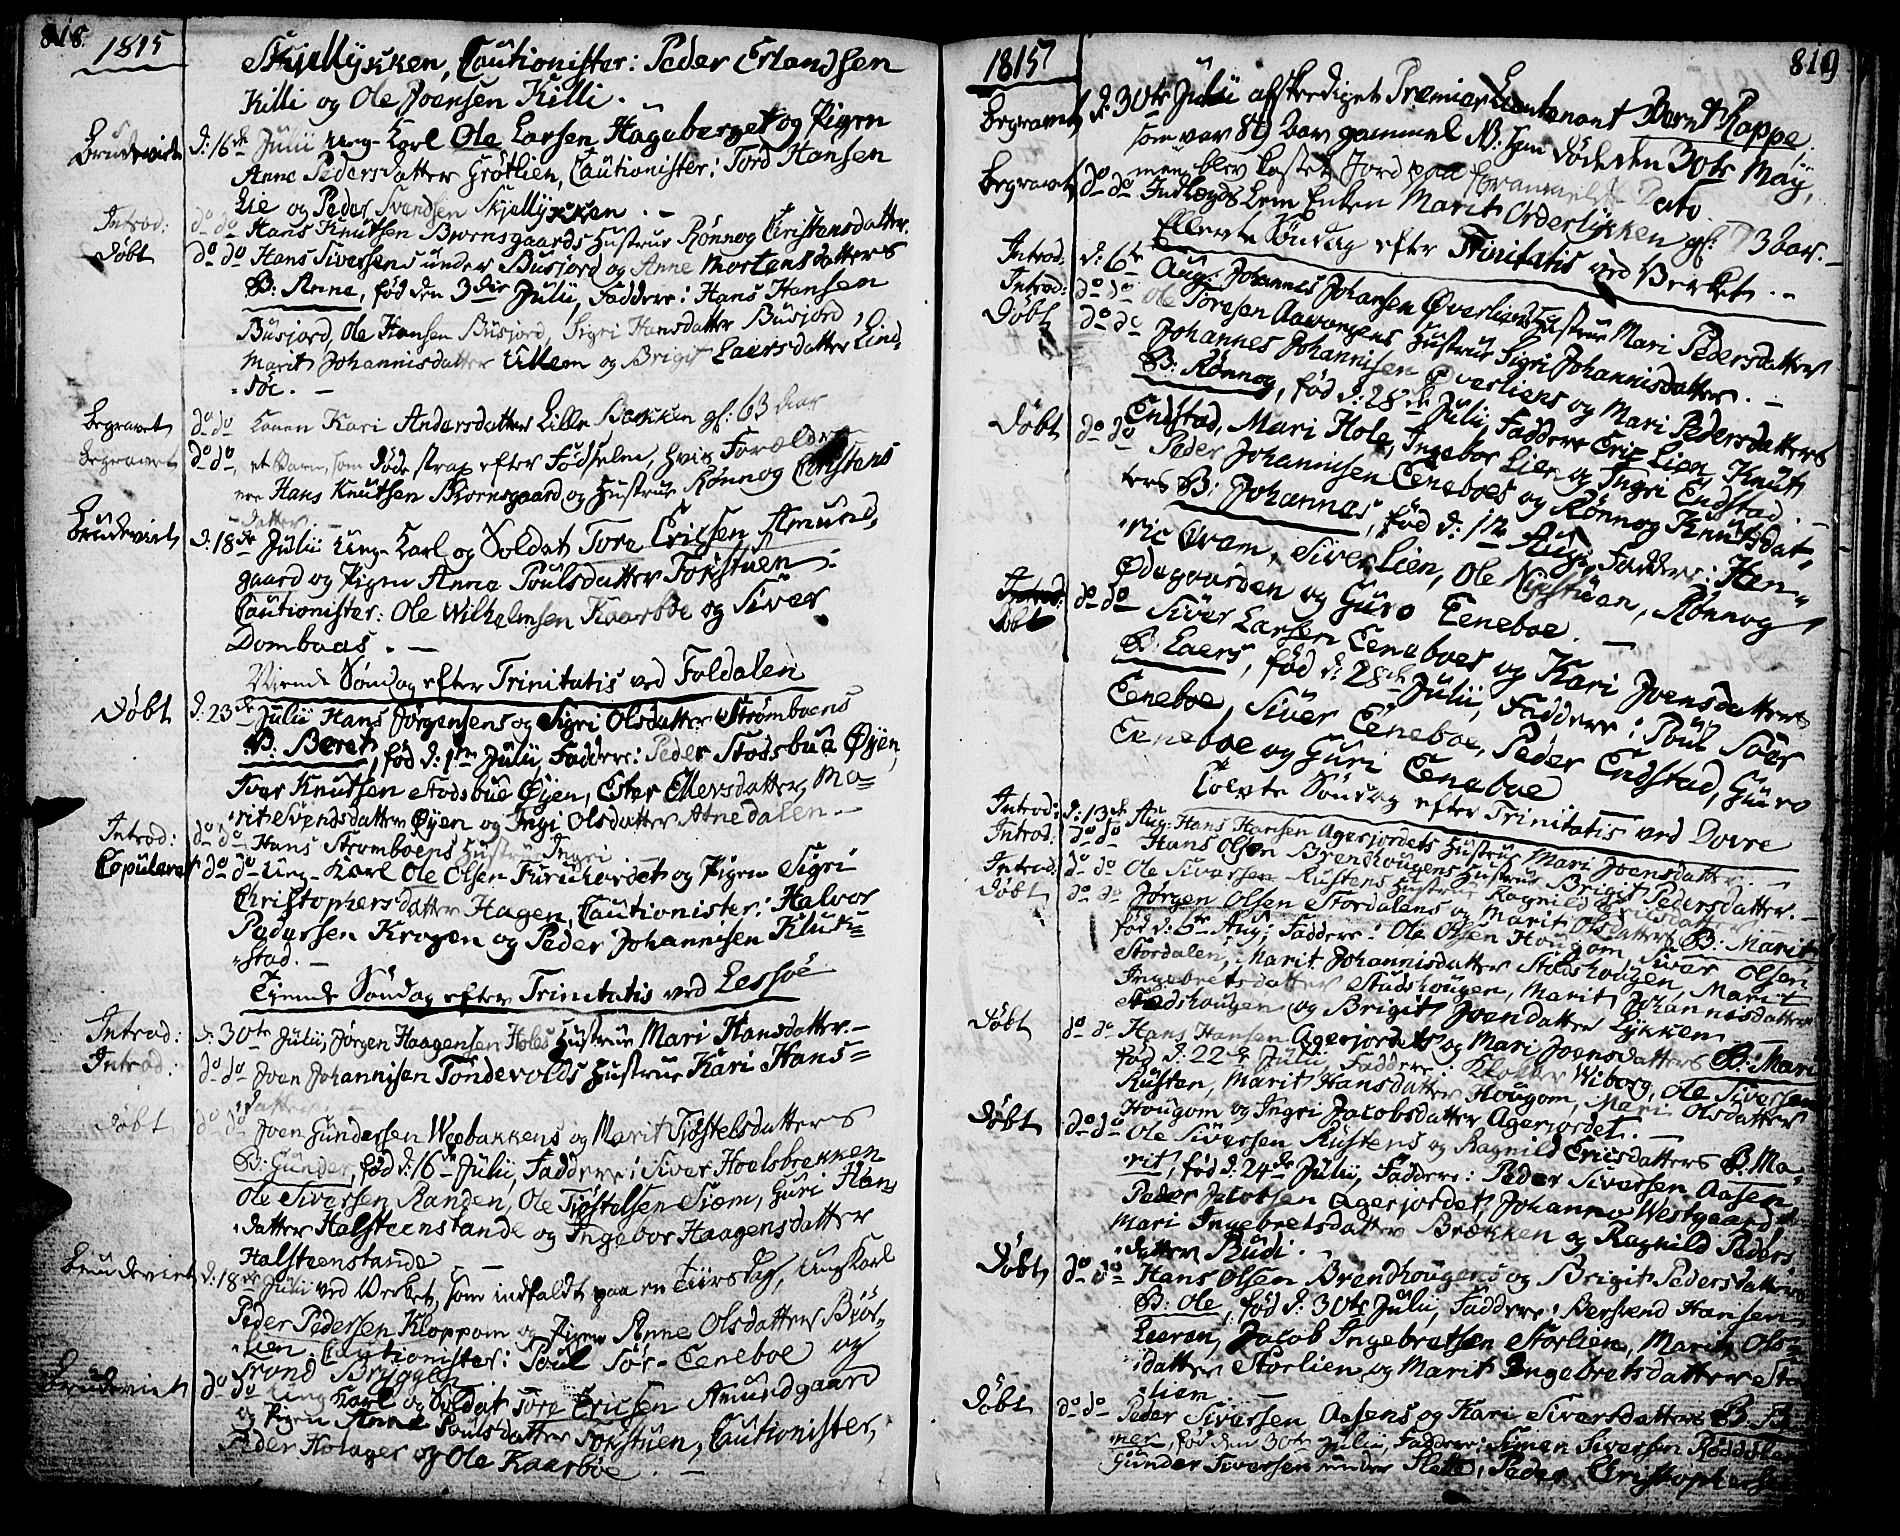 818.
1815
Skjellykken, Cautionister: Peder Erlandsen
Killi og Ole Joensen Killi.
Brudeviet d: 16de Julii Ung-Karl Ole Larsen Hageberget og Pigen
Anne Pedersdatter Grötlien, Cautionister: Tord Hansen
Lie og Peder Svendsen Skjellykken. -
Introd: do do Hans Knutsen Biornsgaards Hustrue Rönnog Christensdatter.
Döbt do do Hans Siversens under Busjord og Anne Mortensdatters
B: Anne, föd den 3die Julii, Faddere: Hans Hansen
Busjord, Ole Hansen Busjord, Sigri Hansdatter Busjord,
Marit Johannisdatter Ullem og Brigit Laersdatter Lind-
söe. -
Begravet do do Konen Kari Andersdatter Lille Bakken gl: 63 Aar
Begravet do do et Barn, som döde strax efter Födselen, hvis Forældre
ere Hans Knutsen Biornsgaard og Hustrue Rönnog Christens
datter -
Brudeviet d: 18de Julii Ung-Karl og Soldat Tore Ericsen Amund-
gaard og Pigen Anne Poulsdatter Tofstuen.
Cautionister: Ole Wilhelmsen Kaarböe og Siver
Dombaas. -
Niende Söndag efter Trinitatis ved Foldalen
Döbt d: 23de Julii Hans Jørgensens og Sigri Olsdatter Strømboens
B: Beret, föd d: 1ste Julii, Faddere: Peder Stodsbue Øyen,
Iver Knutsen Stodsbue Øyen, Ester Ellevsdatter, Ma-
rit Svendsdatter Øyen og Ingri Olsdatter Atnedalen -
Introd: do do Hans Stromboens Hustrue Ingri
Copuleret do do Ung-Karl Ole Olsen Furuhovdet og Pigen Sigri
Christophersdatter Hagen, Cautionister: Halvor
Pedersen Krogen og Peder Johannisen Kluk-
stad. -
Tiende Söndag efter Trinitatis ved Lessöe
Introd: d: 30te Julii, Jørgen Haagensen Holes Hustrue Mari Hansdatter. -
Introd: do do Joen Johannisen Tondevolds Hustrue Kari Hans-
datter -
Döbt do do Joen Gundersen Weebakkens og Marit Tiöstelsdatters
B: Gunder, föd d: 16de Julii, Faddere: Siver Hoelsbrekken
Ole Siversen Randen, Ole Tiöstelsen Siem, Guri Hans
datter Holsteenstande og Ingebor Haagensdatter
Holsteenstande -
Brudeviet d: 18de Julii ved Verket, som indfaldt paa en Tiirsdag, Ung Karl
Peder Pedersen Kloppom og Pigen Anne Olsdatter Biör-
lien. Cautionister: Poul Sör-Eeneboe og
Trond Bryggen
Brudeviet do do Ung Karl og Soldat Tore Ericsen Amundgaard
og Pigen Anne Poulsdatter Tofstuen, Cautionister,
Peder Holager og Ole Kaarböe. -
1815
819
Begravet d: 30te Julii afskediget Premier Lieutenant Bernt Kappe.
som var 89 Aar gammel NB. Han döde den 30te May,
men blev kastet Jord paa foranmeldte Dato.
Begravet do do Indlægds Lem Enken Marit Orderlykken gl: 73 Aar. -
Ellevte Söndag efter Trinitatis ved Verket. -
Introd: d: 6te Aug: Johannes Johansen Øverliens Hustrue Mari Pedersdatter
Introd: do do Ole Toresen Aavangens Hustrue Sigri Johannisdatter. -
Döbt do do Johannes Johannisen Øverliens og Mari Pedersdatters
B: Rönnog, föd d: 28de Julii, Faddere Eric Lien, Knut
Endstad, Mari Hole, Ingebor Lien og Ingri Endstad. -
Döbt do do Peder Johannisen Eeneboes og Rönnog Knutsdat-
ters B: Johannes, föd d: 1te Aug: Faddere: Hen-
ric Qvam, Siver Lien, Ole Nystuen, Rönnog
Ødegaarden og Guro Eeneboe. -
Döbt do do Siver Larsen Eeneboes og Kari Joensdatters
B: Laers, föd d: 28de Julii, Faddere: Poul Söer
Eeneboe, Siver Eeneboe, Peder Endstad, Guro
Eeneboe og Guri Eeneboe
Tolvte Söndag efter Trinitatis ved Dovre
Introd: d: 13de Aug: Hans Hansen Agerjordets Hustrue Mari Joensdatter. -
Introd: do do Hans Olsen Brendhougens Hustrue Brigit Pedersdatter. -
Introd: do do Ole Siversen Rustens Hustrue Ragnild Ericsdatter
Döbt do do Jørgen Olsen Stordalens og Marit Olsdatters B: Marit
föd d: 5te Aug: Faddere: Ole Olsen Hougom, Siver Olsen
Stordalen, Marit Johannisdatter Stodshougen, Marit
Ingebretsdatter Studshougen, Marit Johannesdatter
Stodshougen og Brigit Joendatter Lykken -
Döbt do do Hans Hansen Agerjordets og Mari Joensdatters B: Mari
föd d: 22de Julii, Faddere: Klokker Wiborg, Ole Siversen
Rusten, Marit Hansdatter Hougom, Mari Olsdatter
Hougom og Ingri Jacobsdatter Agerjordet. -
Döbt do do Ole Siversen Rustens og Ragnild Ericsdatters B: Ma-
rit, föd d: 24de Julii, Faddere: Peder Siversen Aasen
Peder Jacobsen Agerjordet, Johanne Westgaard
Mari Ingebretsdatter Brækken og Ragnild Peders-
datter Budi.
Döbt do do Hans Olsen Brendhougens og Brigit Pedersdatters
B: Ole, föd d: 30te Julii, Faddere: Bersvend Hansen
Leeren, Jacob Ingebretsen Storlien, Marit Ols-
datter Storlien og Marit Ingebretsdatter Stor
lien -
Döbt do do Peder Siversen Aasens og Kari Siversdatters B:
mer, föd den 30te Julii, Faddere: Simen Siversen
Gunder Siversen under Slette, Peder Christophersen